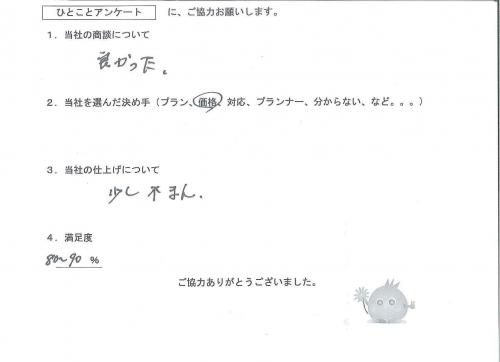 ひとことアンケート に、ご協力お願いします。
1．当社の商談について
良かった。
2．当社を選んだ決め手（プラン、価格、対応、プランナー、分からない、など。。。）
3．当社の仕上げについて
少し不まん.
4．満足度
80~90 %
ご協力ありがとうございました。